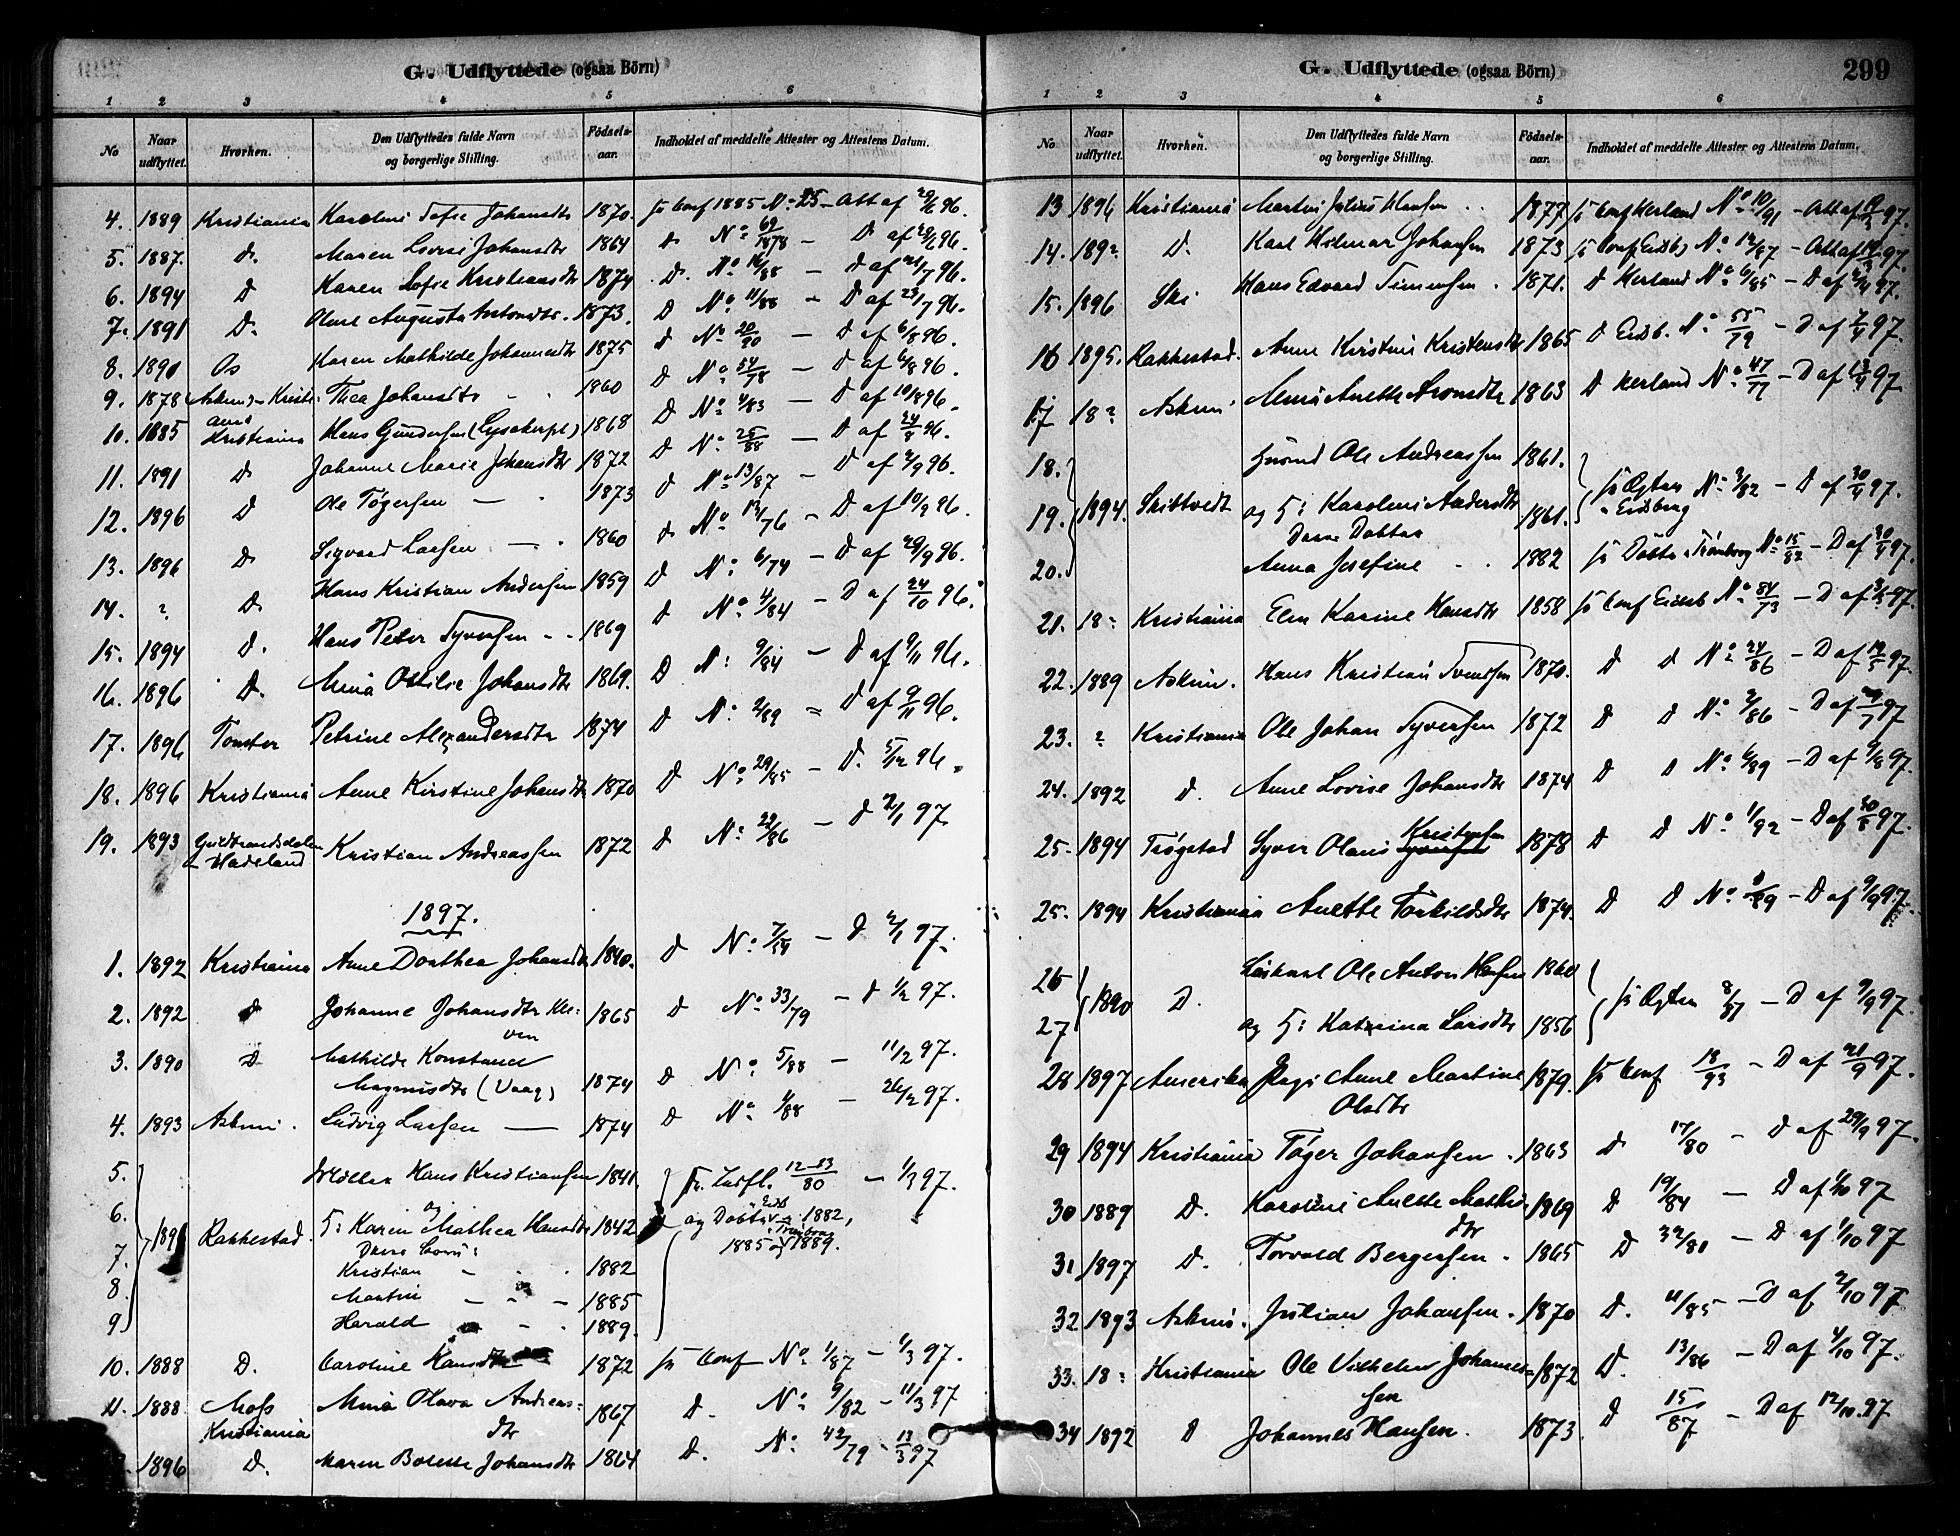 G. Udflyttede (ogsaa Börn)
1 2 3 4 5 6
No Naar udflyttet. Hvorhen. Den Udflyttedes fulde Navn og borgerlige Stilling. Födsels-aar. Indholdet af meddelte Attester og Attestens Datum.
4. 1889 Kristiania Karoline Sofie Johansdtr 1870. Conf 1885 No 25 - Att af 96.
5. 1887. D. Maren Lovise Johansdtr 1864 D No 69/1878 - D af 96.
6. 1894 D Karen Sofie Kristiansdtr 1874 D. No 16/88 - D af 21/7 96.
7. 1891 D. Oline Augusta Antonsdtr. 1873. D No 11/88 - D af 23/7 96.
8. 1890 Os Karen Mathilde Johannesdtr 1875 D No 20/90 - D af 6/8 96.
9. 1878 Askim - Kristiania Thea Johansdtr 1860 D No 54/78 - D af 6/8 96.
10. 1885 Kristiania Hans Gundersen (Lysakerpl) 1868 D No 4/83 - D af 10/8 96.
11. 1891 D Johanne Marie Johansdtr 1872 D No 25/88 - D af 24/8 96.
12. 1896 D Ole Tøgersen 1873 D No 13/87 - D af 2/9 96.
13. 1896 D Sigvard Larsen 1860 D No 76 - D af 10/9 96.
14. ? D. Hans Kristian Andersen 1859 D No 6/74 - D af 29/9 96.
15. 1894 D. Hans Peter Syversen 1869 D No 4/84 - D af 24/10 96.
16. 1896 D. Anna Ottilie Johansdtr 1869. D No 9/84 - D af 9/11 96.
17. 1896 Tomter Petrine Alexandersdtr 1874 D No 2/89 = D af 9/11 96.
18. 1896 Kristiania Anne Kirstine Johansdtr 1870 D No 29/85 - D. 5/12 96.
19. 1893 Guldbrandsdalen - Hadeland Kristian Andreassen 1872 D No 22/86 - D 2/1 97.
1897.
1. 1892 Kristiania Anne Dorthea Johansdtr 1840. D No 7/54 - D 2/1 97.
2. 1892 D Johanne Johansdtr Kleven 1865 D No 33/79 - D 1/2 97.
3. 1890 D Mathilde Konstance Magnusdtr (Vaag) 1874 D No 5/88 - 11/2 97.
4. 1893 Askim. Ludvig Larsen 1874 D No 4/88 - 26/2 97.
5. Møller Hans Kristiansen 1841. 12-13/80 - 1/3 97.
6. 189 Rakkestad. og H: Karen Mathea Hansdtr 1842 og Døbte 1882,
7. Deres Børn: Kristian 1882 1885 og 1889.
8. Martin 1885
9 Harald 1889.
10. 1888 D. Caroline Hansdtr 1872 Conf No 1/87 - 1/3 97.
11. 1888. Moss Kristiania Mina Olava Andreasdtr 1867 D. No 9/82 - 11/3 97
1896 D. Maren Bolette Johansdtr 1864 D. No 42/79 - 13/3 97
G. Udflyttede (ogsaa Börn) 299
1 2 3 4 5 6
No Naar udflyttet. Hvorhen. Den Udflyttedes fulde Navn og borgerlige Stilling. Födsels-aar. Indholdet af meddelte Attester og Attestens Datum.
13 1896 Kristiania Martin Julius Hansen 1877 Conf Herland No 10/91 - Att af 97.
14. 189? D. Karl Hilmar Johansen 1873 Conf Eidsb No 12/87 - Att af 97.
15. 1896 Ski Hans Edvard Simensen 1871. D Herland No 6/85 - D af 97.
16 1895. Rakkestad. Anne Kirstine Kristensdtr 1865 D Eidsb. No 55/79 - D af 7/4 97.
17 18? Askim Anette 1863 D Herland No 47/77 - D af 13/4 97.
18. Ole Andreassen 1861.
19. 1894. Skiptvedt og H: Karoline Andersdtr 1861. No 3/82 - D af 30/4 97. Eidsberg
20. Deres Datter Anna Josefine 1882 Døbte Trømborg No 15/82 - D af 30/4 97.
21. 18? Kristiania Elen Karine Hansdtr 1858 Conf Eidsb No 84/73 - D af 97.
22. 1889 Askim. Hans Kristian Svendsen 1870. D D No 24/86 - D af 97.
23. ? Kristiania Ole Johan Syversen 1872 D D No 2/86 - D af 97
24. 1892 D. Anne Lovise Johansdtr 1874 D D No 6/89 - D af 9/8 97.
25. 1894 Trøgstad Syver Olaus Syversen 1878 D D No 1/92 - D af 30/8 97.
25. 1894 Kristiania Anette Torkildsdtr 1874. D D No 89 - D af 9/9 97.
26 Ole Anton Hansen 1860
27 1890 D. og H: Katrina Larsdtr 1856 - D af 9/9 97.
28 1897 Amerika Pige Anne Martine Olsdtr 1879. Conf 18/93 - D af 21/9 97.
29 1894 Kristiania Tøger Johansen 1863 D 17/80 - D af 29/9 97.
30 1889 D. Karoline Anette Mathisdtr 1869 D 19/84 - D af 1/10 97
31 1897 D. Torvald Bergersen 1865 D 32/81 - D af 1/10 97
32 1893 Askim. Julian Johansen 1870 D. 11/85 - D af 2/10 97
33. 18? Kristiania Ole Vilhelm Johannessen 1872 D. 13/86 - D af 4/10 97.
34 1892 D Johannes Hansen. 1873. D 15/87 - D af 12/10 97